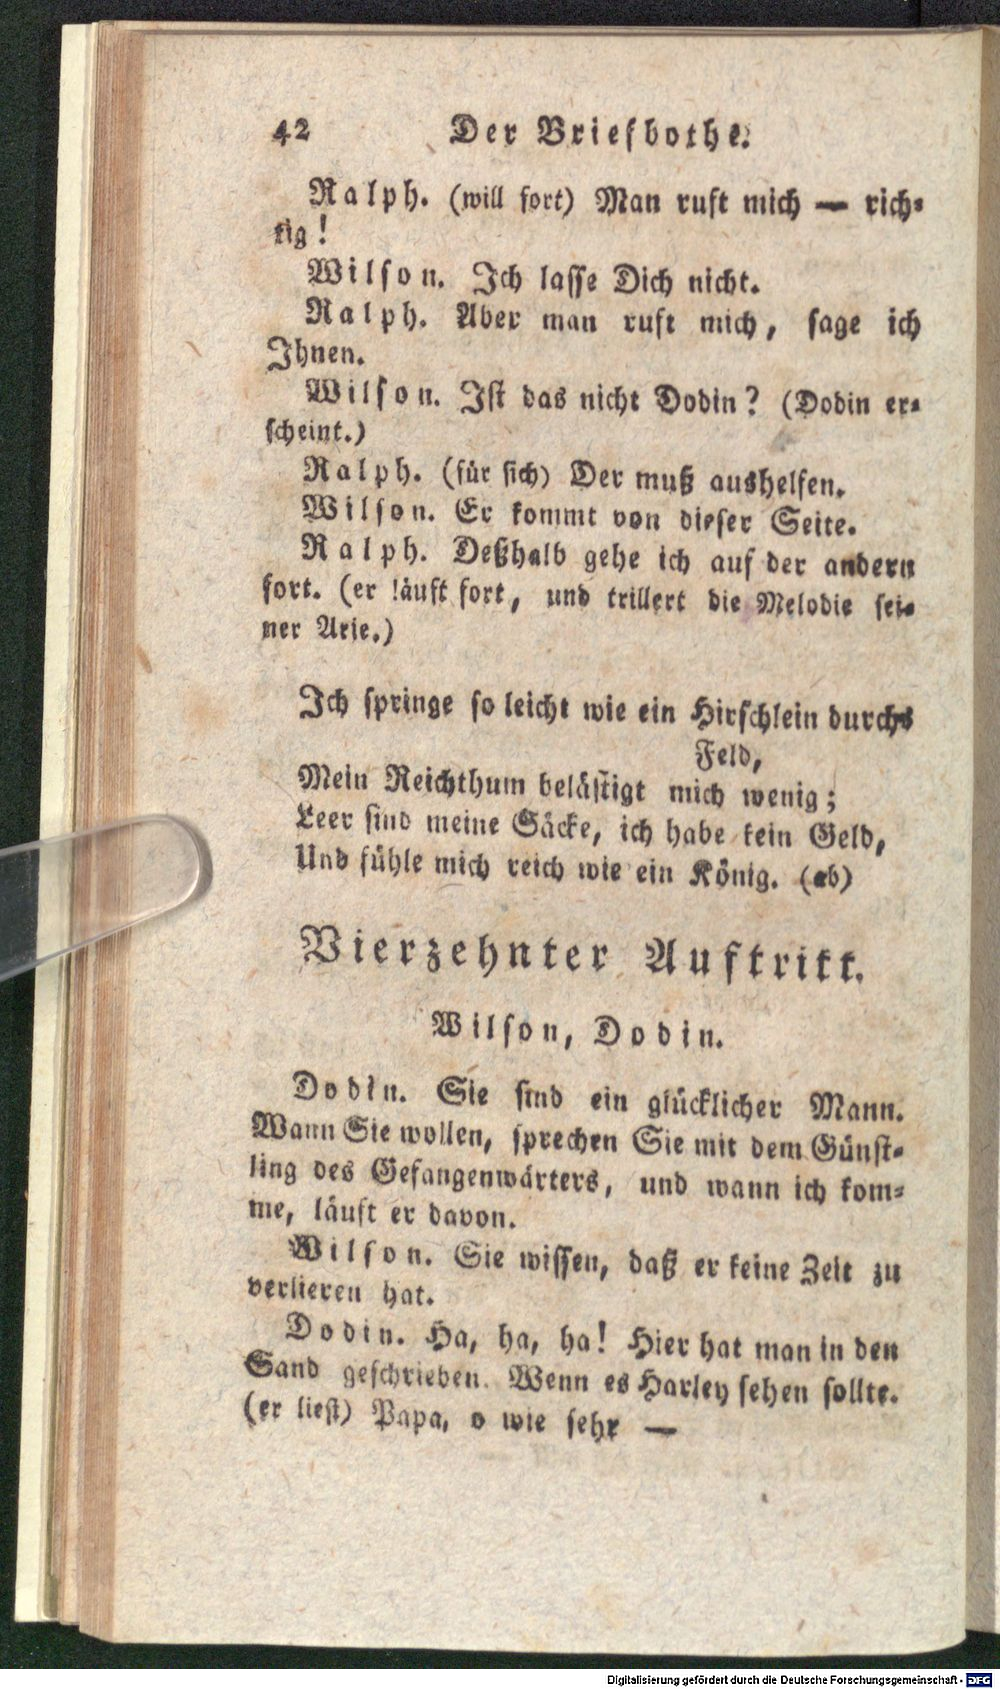 42 Der Briefbothe.
Ralph. (will fort) Man ruft mich — rich-
tig!
Wilson. Ich lasse Dich nicht.
Ralph. Aber man ruft mich, sage ich
Ihnen.
Wilson. Ist das nicht Dodin? (Dodin er-
scheint.)
Ralph. (für sich) Der muß aushelfen.
Wilson. Er kommt von dieser Seite.
Ralph. Deßhalb gehe ich auf der andern
fort. (er läuft fort, und trillert die Melodie sei-
ner Arie.)
Ich springe so leicht wie ein Hirschlein durchs
Feld,
Mein Reichthum belästigt mich wenig;
Leer sind meine Säcke, ich habe kein Geld,
Und fühle mich reich wie ein König. (ab)
Vierzehnter Auftritt.
Wilson, Dodin.
Dodin. Sie sind ein glücklicher Mann.
Wann Sie wollen, sprechen Sie mit dem Günst-
ling des Gefangenwärters, und wann ich kom-
me, läuft er davon.
Wilson. Sie wissen, daß er keine Zeit zu
verlieren hat.
Dodin. Ha, ha, ha! Hier hat man in den
Sand geschrieben. Wenn es Harley sehen sollte.
(er liest) Papa, o wie sehr —
Digitalisierung gefördert durch die Deutsche Forschungsgemeinschaft - DFG